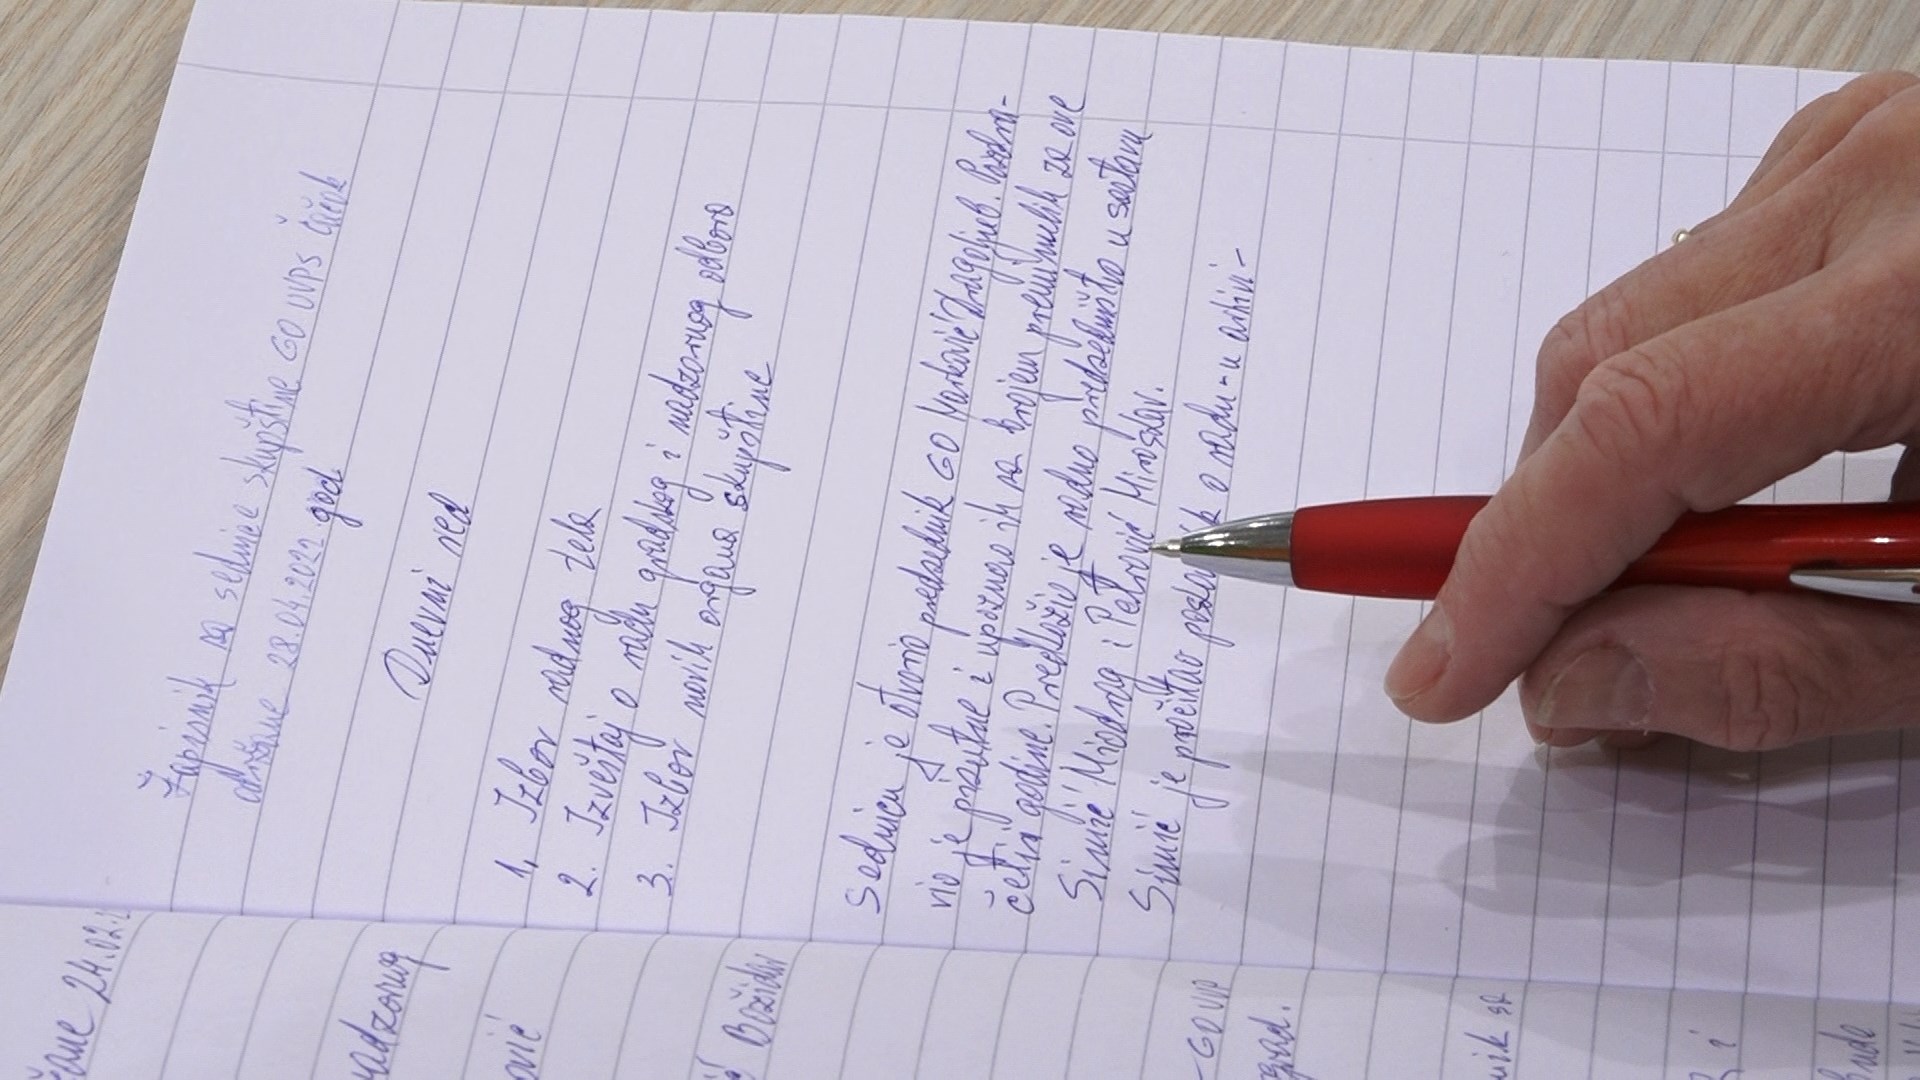 Zapisnik sa sednice skupštine GO UVPS Čačak
održane 28.04.2022 god
Dnevni red
1. Izbor radnog tela
2. Izveštaj o radu gradskog i nadzornog odbora
3. Izbor novih organa skupštine
Sednicu je otvorio predsednik GO Marković Dragoljub. Pozdra-
vio je prisutne i upoznao ih sa brojem preminulih za ove
četiri godine. Predložio je radno predsedništvo u sastavu
Simić Miodrag i Petrović Miroslav.
Simić je pročitao o radu - u arhivi -
žane 24.02.
nadzornog
ović
Božidar
- GO UVP
grad.
nik sa
i